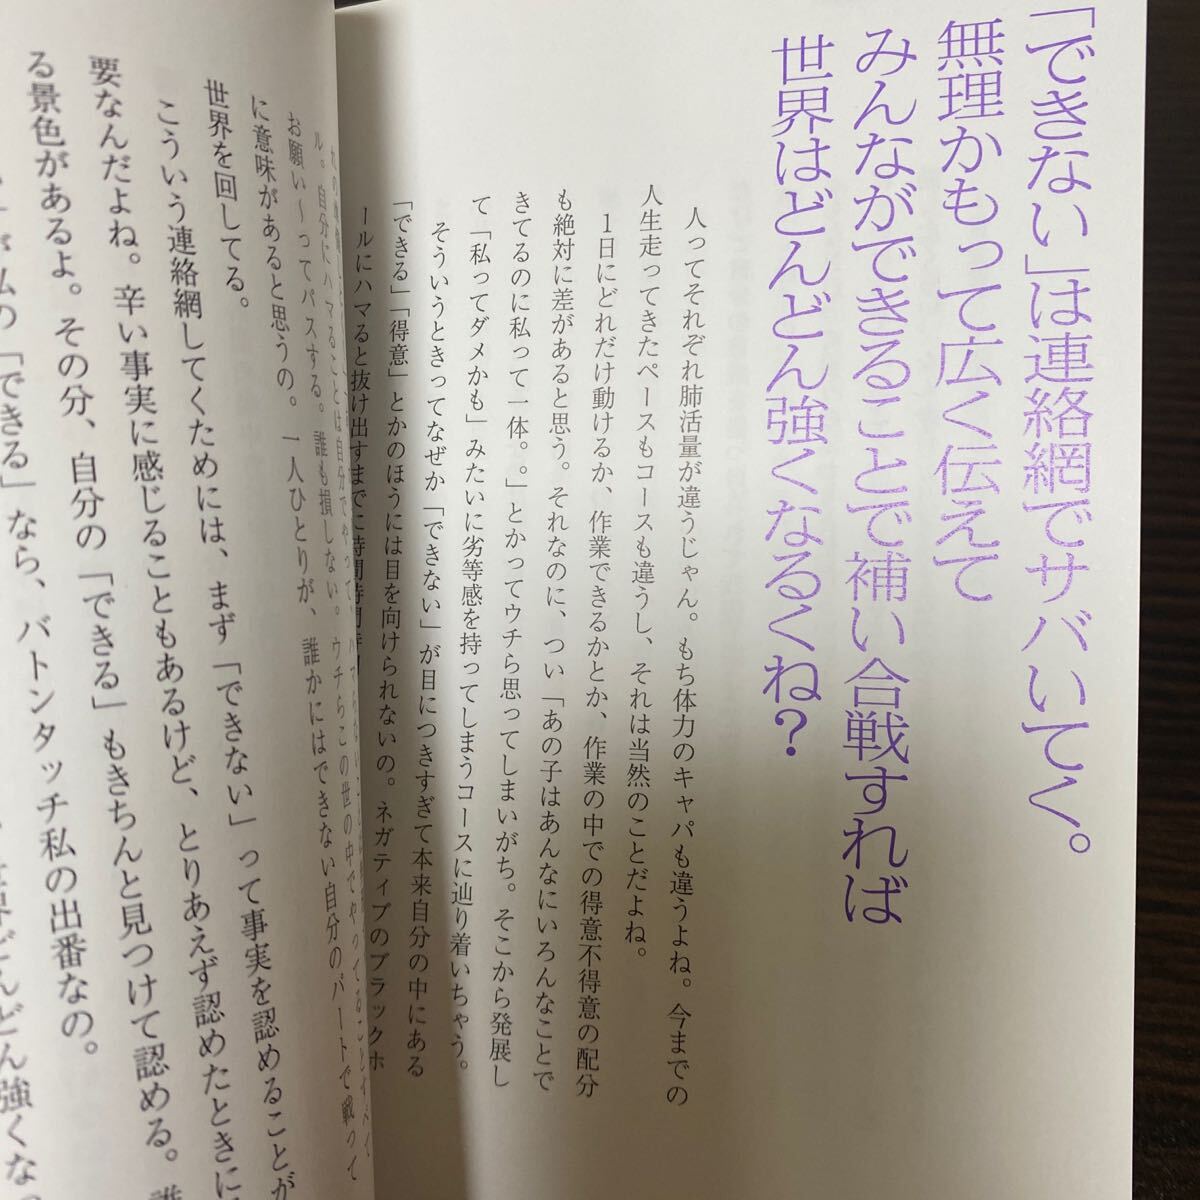 「できない」は連絡網でサバいてく。
無理かもって広く伝えて
みんなができることで補い合戦すれば
世界はどんどん強くなるくね?
人ってそれぞれ肺活量が違うじゃん。もち体力のキャパも違うよね。今までの
人生走ってきたペースもコースも違うし、それは当然のことだよね。
1日にどれだけ動けるか、作業できるかとか、作業の中での得意不得意の配分
も絶対に差があると思う。それなのに、つい「あの子はあんなにいろんなことで
きてるのに私って一体。。」とかってウチら思ってしまいがち。そこから発展し
て「私ってダメかも」みたいに劣等感を持ってしまうコースに辿り着いちゃう。
そういうときってなぜか「できない」が目につきすぎて本来自分の中にある
「できる」「得意」とかのほうには目を向けられないの。ネガティブのブラックホ
ールにハマると抜け出すまでに時間
ル。自分にハマることは自分でやって、
お願い〜ってパスする。誰も損しない。ウチらこの世の中でやってることすべて
に意味があると思うの。一人ひとりが、誰かにはできない自分のパートで戦って
世界を回してる。
こういう連絡網してくためには、まず「できない」って事実を認めることが
要なんだよね。辛い事実に感じることもあるけど、とりあえず認めたときに
る景色があるよ。その分、自分の「できる」もきちんと見つけて認める。誰
が私の「できる」なら、バトンタッチ私の出番なの。
どんどん強くな